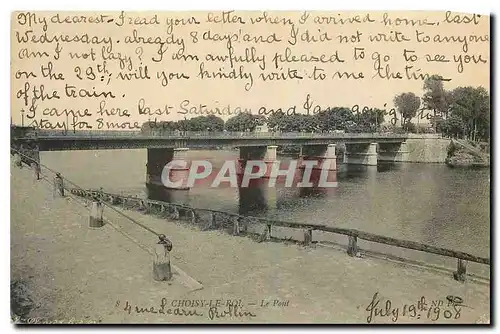 My dearest - I read your letter when I arrived home, last
Wednesday. already 8 days! and I did not write to anyone
am I not lazy? I am awfully pleased to go to see you
on the 29th; will you kindly write to me the time
of the train.
I came here last Saturday and I am going
stay for 8 more days
CPARAMA.FR
8 CHOISY-LE-ROI. — Le Pont ND
4 rue Ledru Rollin
July 19th 1908